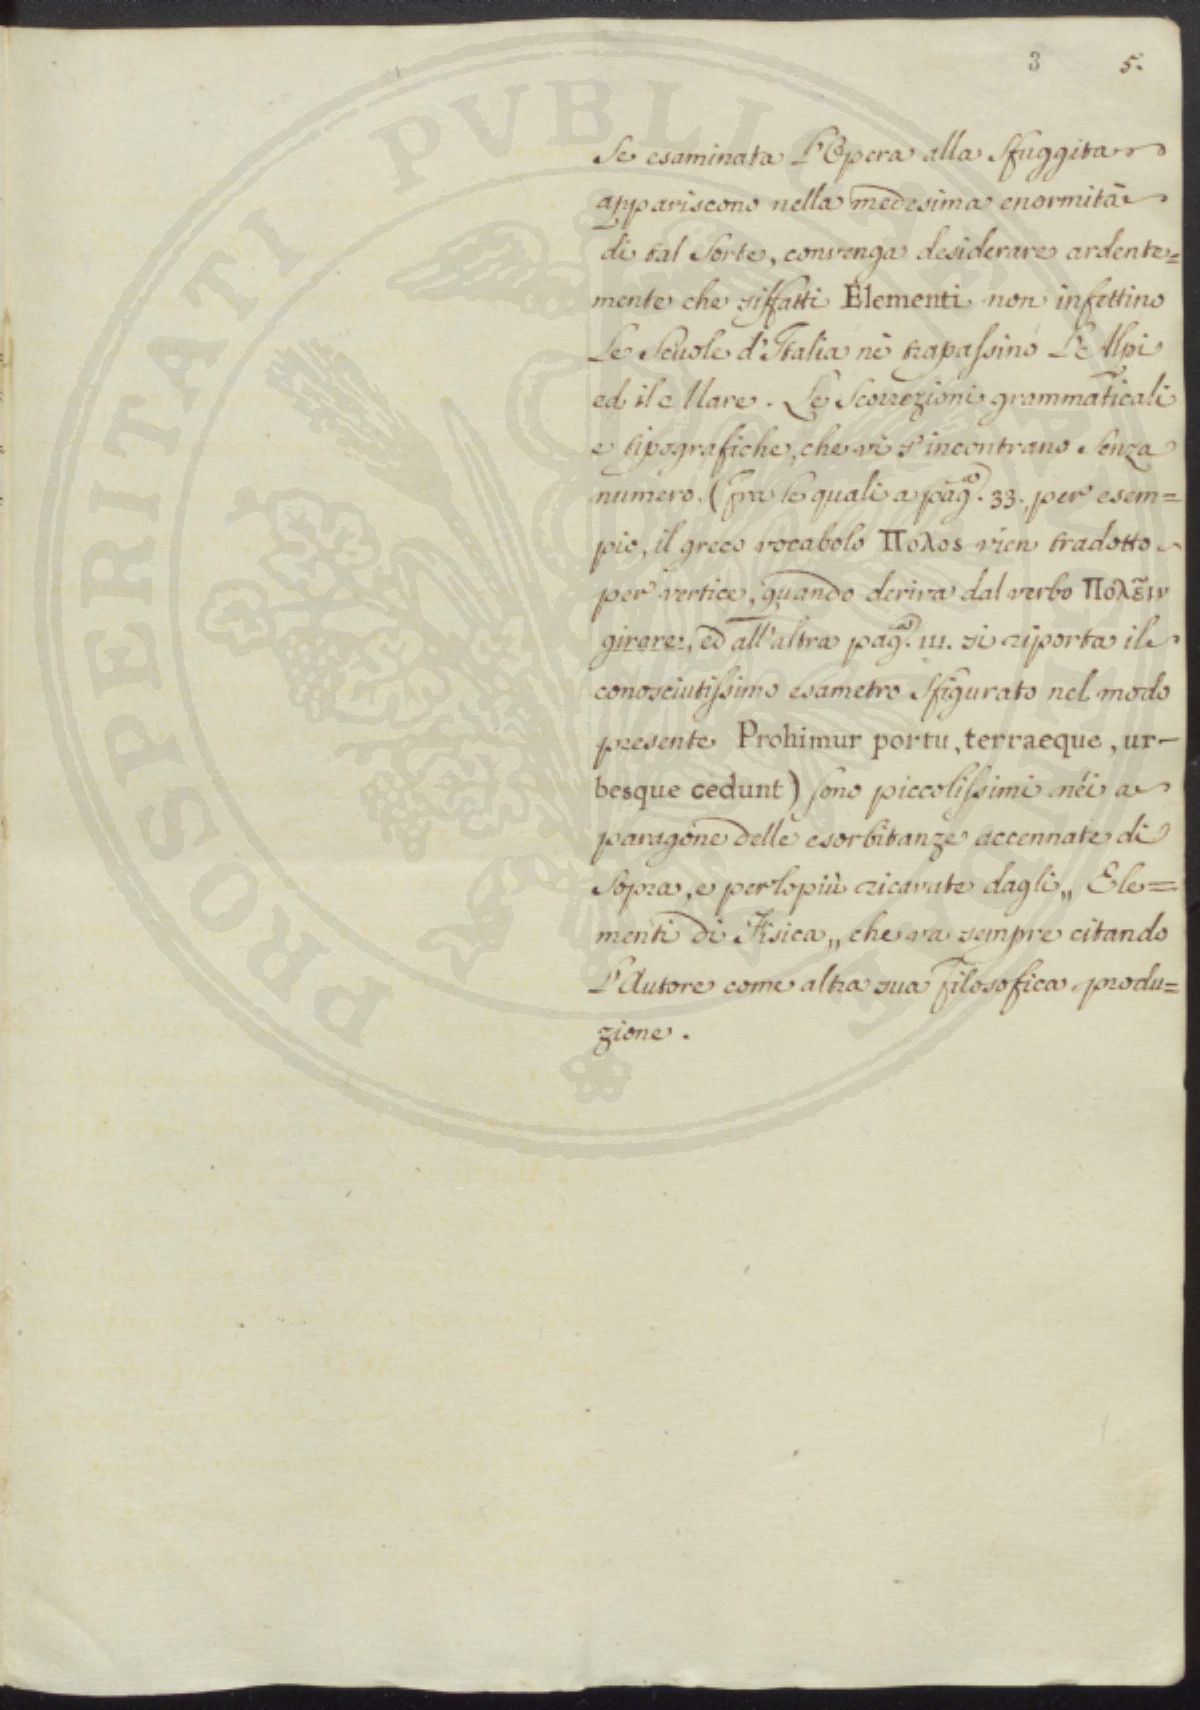 3 5.
Se esaminata l'Opera alla sfuggita
appariscono nella medesima enormità
di tal sorte, convenga desiderare ardente=
mente che siffatti Elementi non infettino
le Scuole d'Italia nè trapassino le Alpi
ed il Mare. Le Scorrezioni grammaticali
e tipografiche, che vi s'incontrano senza
numero, (fra le quali a pag.ª 33. per esem=
pio, il greco vocabolo Πολος vien tradotto
per vertice, quando deriva dal verbo Πολεῖν
girare, ed all'altra pag.ª 111. si riporta il
conosciutissimo esametro sfigurato nel modo
presente Prohimur portu, terraeque, ur-
besque cedunt) sono piccolissimi néi a
paragone delle esorbitanze accennate di
sopra, e perlopiù ricavate dagli „ Ele=
menti di Fisica „ che va sempre citando
l'Autore come altra sua filosofica produ=
zione.
PROSPERITATI PVBLICAE